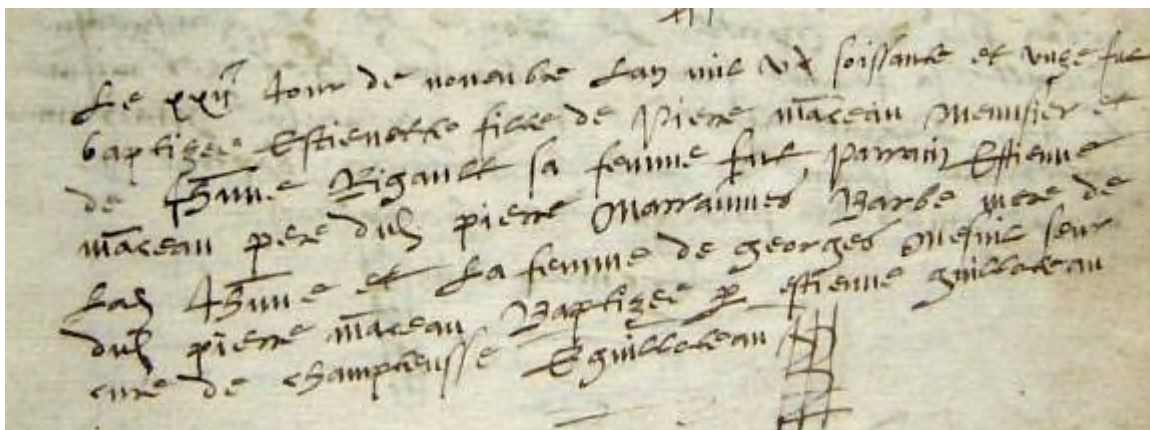 Le xxii^e Jour de novembre Lan mil v^c soissante et unze fut
baptizee Estienotte fille de Pierre maceau Menusier et
de Jhanne Rigault sa femme fut parrain Estienne
maceau pere dud pierre Marraines Barbe mere de
Lad Jhanne et La femme de georges Mesnil seur
dud pierre maceau Baptizee p estienne guilloteau
cure de champieusse E guilloteau